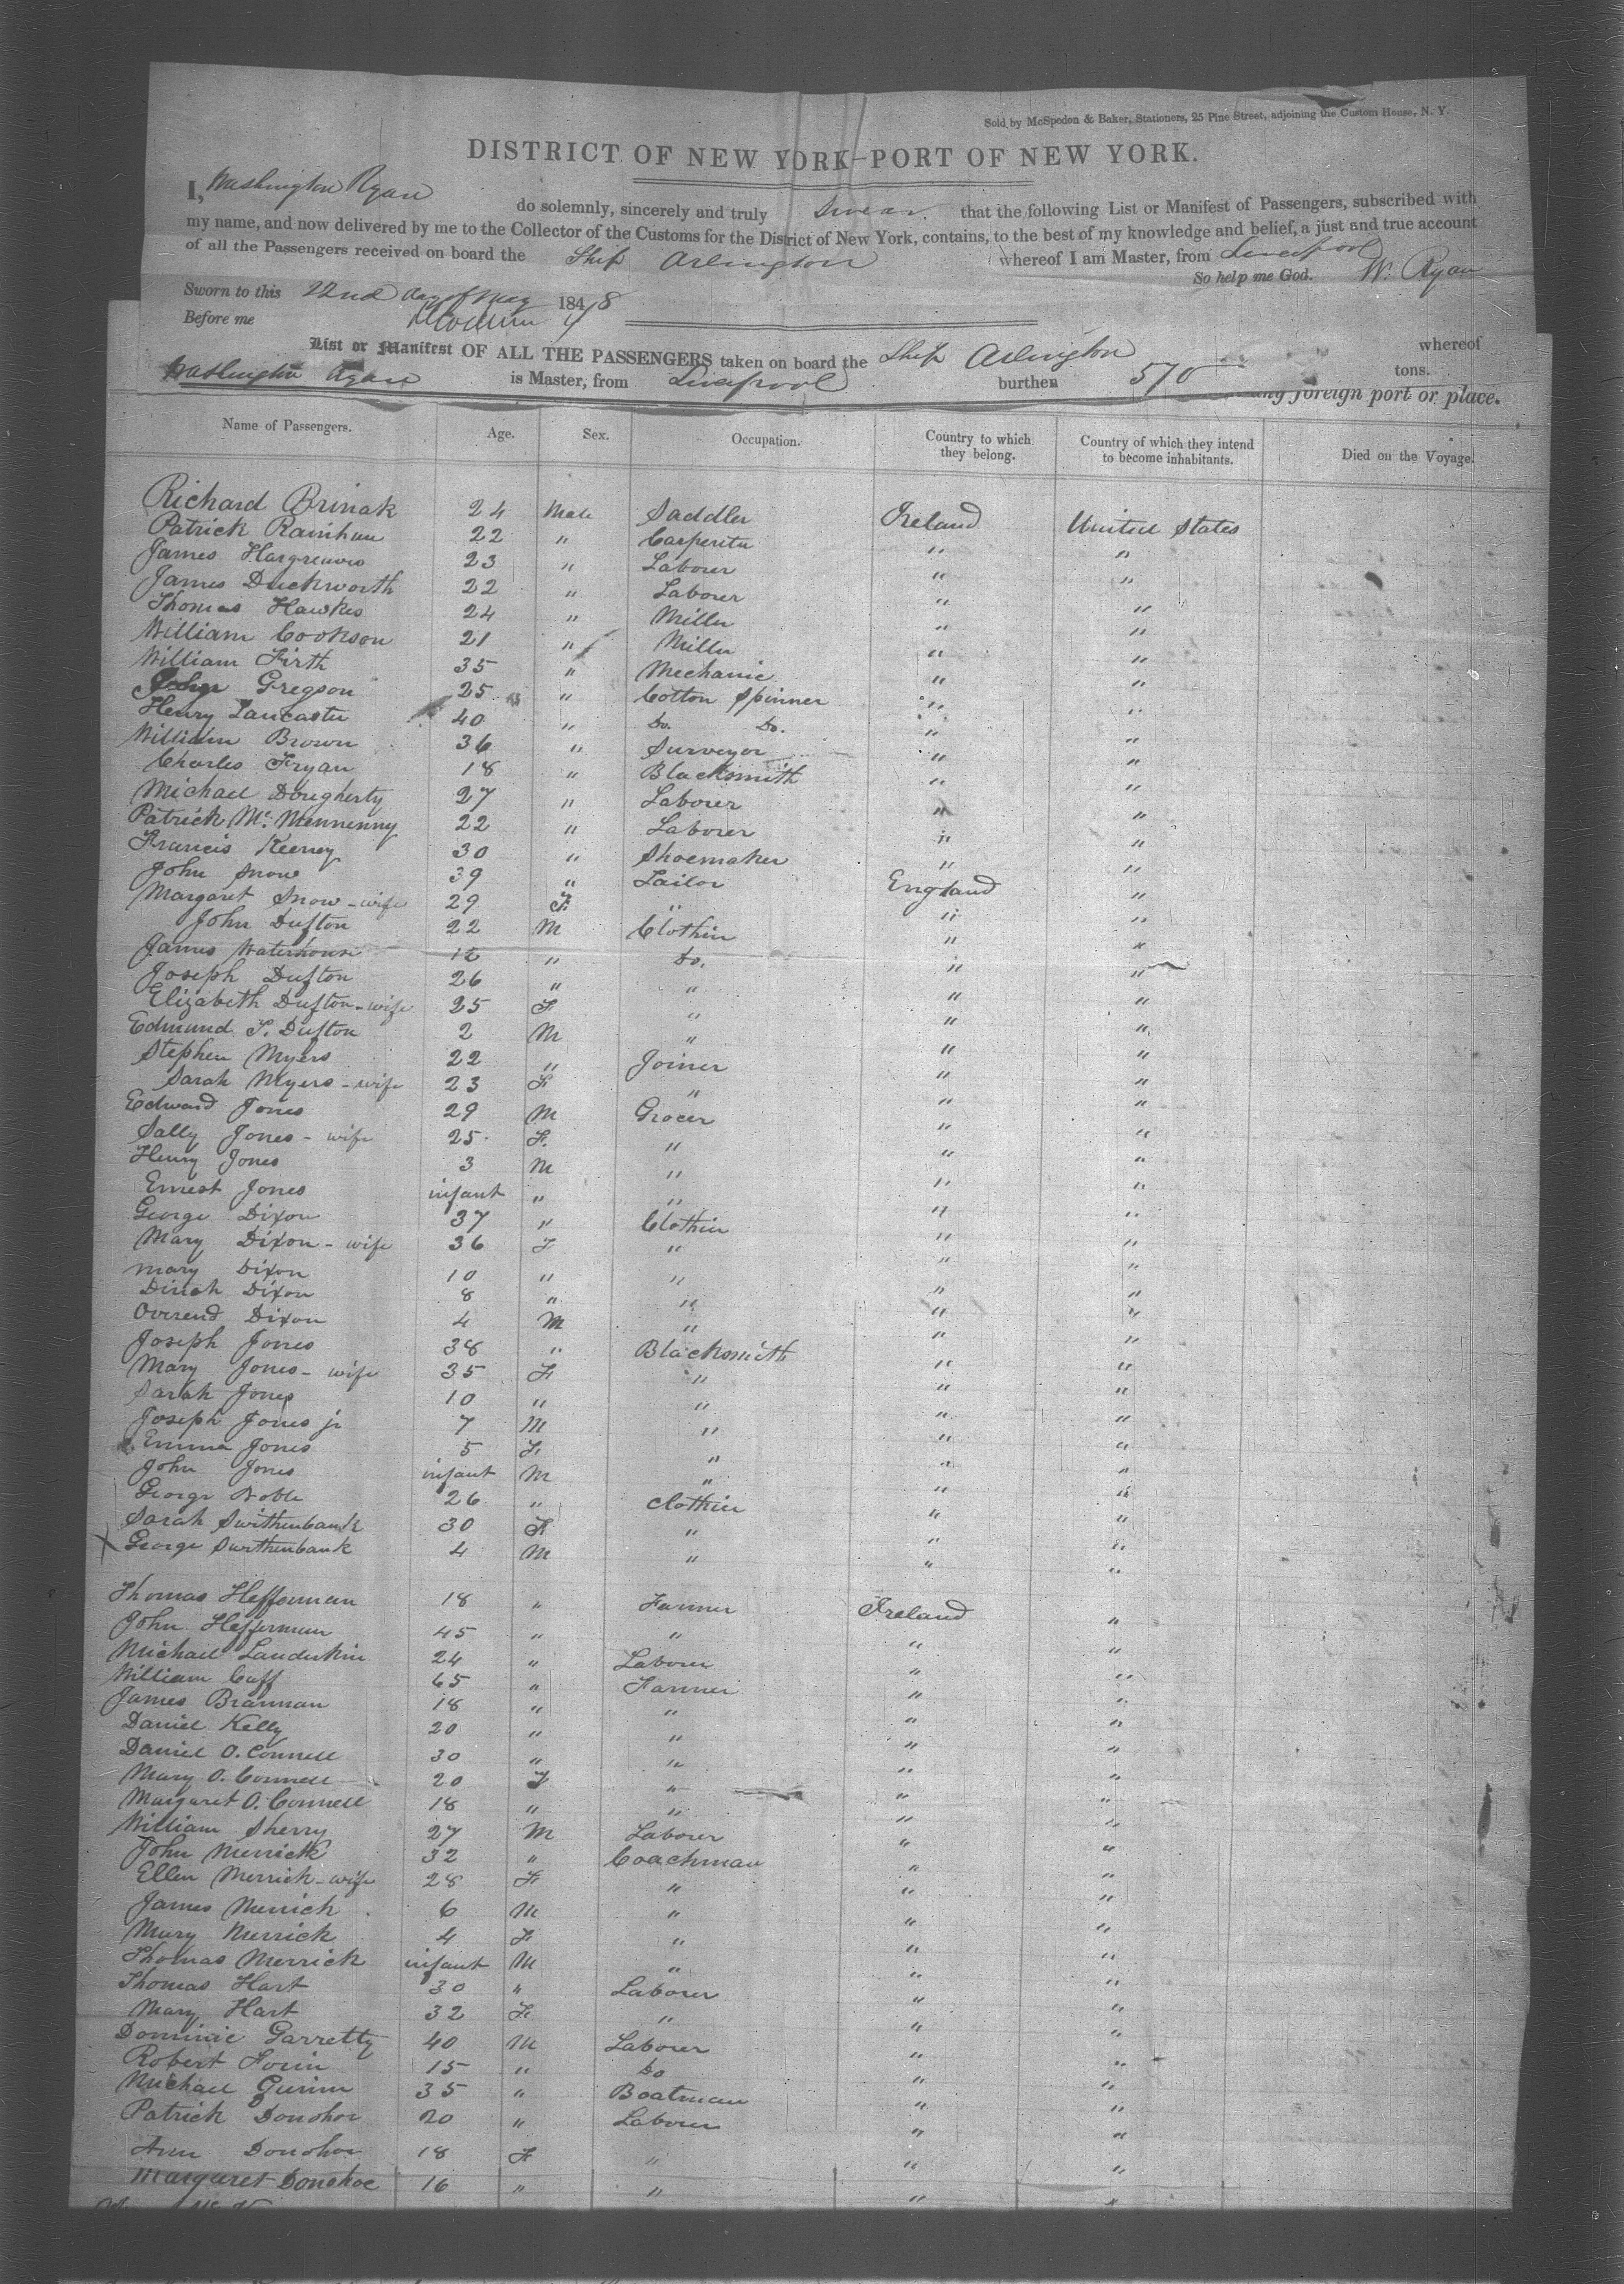 Sold by McSpedon & Baker, Stationers, 25 Pine Street, adjoining the Custom House, N. Y.
DISTRICT OF NEW YORK–PORT OF NEW YORK.
I, Washington Ryan do solemnly, sincerely and truly swear that the following List or Manifest of Passengers, subscribed with
my name, and now delivered by me to the Collector of the Customs for the District of New York, contains, to the best of my knowledge and belief, a just and true account
of all the Passengers received on board the Ship Arlington whereof I am Master, from Liverpool
So help me God. W. Ryan
Sworn to this 22nd day of May 1848
Before me
List or Manifest OF ALL THE PASSENGERS taken on board the Ship Arlington whereof
Washington Ryan is Master, from Liverpool burthen 570 tons.
foreign port or place.
Name of Passengers. Age. Sex. Occupation. Country to which they belong. Country of which they intend to become inhabitants. Died on the Voyage.
Richard Brinak 24 Male Saddler Ireland United States
Patrick 22 " Carpenter " "
James Hargreaves 23 " Laborer " "
James Duckworth 22 " Laborer " "
Thomas Hawkes 24 " Miller " "
William Cookson 21 " Miller " "
William Firth 35 " Mechanic " "
Gregson 25 " Cotton Spinner " "
Henry Lancaster 40 " Do. Do. " "
William Brown 36 " Surveyor " "
Charles Fryan 18 " Blacksmith " "
Michael Dougherty 27 " Laborer " "
Patrick Mc. Mennenny 22 " Laborer " "
Francis Keeney 30 " Shoemaker " "
John Snow 39 " Tailor England "
Margaret Snow - wife 29 F. " " "
John Dufton 22 M Clothier " "
James Waterhouse 12 " do. " "
Joseph Dufton 26 " " " "
Elizabeth Dufton - wife 25 F. " " "
Edmund T. Dufton 2 M " " "
Stephen Myers 22 " Joiner " "
Sarah Myers - wife 23 F. " " "
Edward Jones 29 M Grocer " "
Sally Jones - wife 25 F. " " "
Henry Jones 3 M " " "
Ernest Jones infant " " " "
George Dixon 37 " Clothier " "
Mary Dixon - wife 36 F " " "
Mary Dixon 10 " " " "
Dinah Dixon 8 " " " "
Overend Dixon 4 M " " "
Joseph Jones 38 " Blacksmith " "
Mary Jones - wife 35 F. " " "
Sarah Jones 10 " " " "
Joseph Jones jr 7 M " " "
Emma Jones 5 F. " " "
John Jones infant M " " "
George Noble 26 " Clothier " "
Sarah Swithenbank 30 F. " " "
George Swithenbank 4 M " " "
Thomas Heffernan 18 " Farmer Ireland "
John Heffernan 45 " " " "
Michael Lauderkin 24 " Laborer " "
William Cuff 65 " Farmer " "
James Brannan 18 " " " "
Daniel Kelly 20 " " " "
Daniel O. Connell 30 " " " "
Mary O. Connell 20 F " " "
Margaret O. Connell 18 " " " "
William Sherry 27 M Laborer " "
John Merrick 32 " Coachman " "
Ellen Merrick - wife 28 F. " " "
James Merrick 6 M " " "
Mary Merrick 4 F. " " "
Thomas Merrick infant M " " "
Thomas Hart 30 " Laborer " "
Mary Hart 32 F. " " "
Dominic Garretty 40 M Laborer " "
Robert 15 " Do " "
Michael 35 " Boatman " "
Patrick Donohoe 20 " Laborer " "
Ann Donohoe 18 F. " " "
Margaret Donohoe 16 " " " "